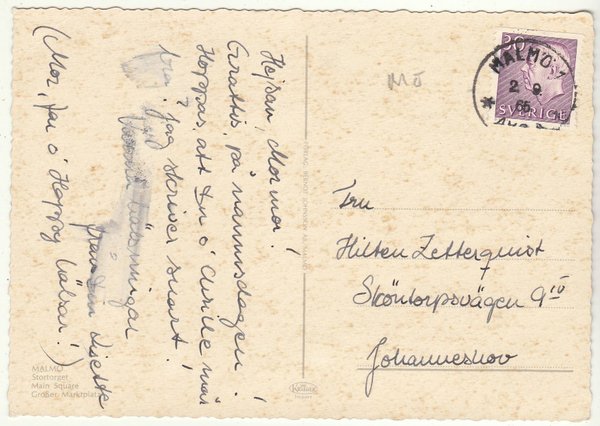 Hejsan, Mormor!
Grattis, på namnsdagen!
Hoppas, att Du o'
bra. Jag skriver snart!
från Din Lisette
(Mor, Far o' Hoppsy hälsar!)
MALMÖ
Stortorget
Main Square
Großer Marktplatz
MÖ
30
SVERIGE
MALMÖ 1
2 9
65
Fru
Hilten Zetterquist
Sköntorpsvägen 9 IV
Johanneshov